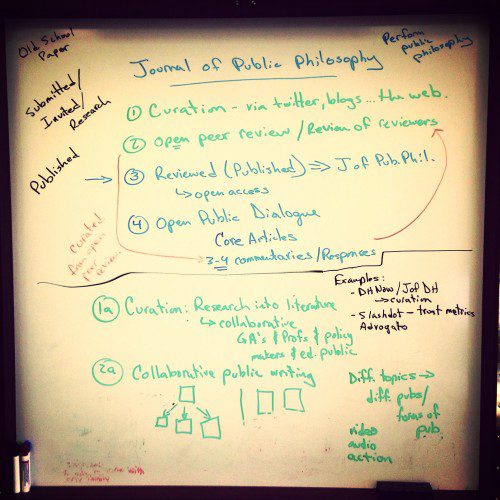 Old School
Paper
Journal of Public Philosophy
Perform
public
philosophy
Submitted/
Invited/
Research
Published
① Curation - via twitter, blogs... the web.
② Open peer review / Review of reviewers
③ Reviewed (Published) ⇒ J of Pub. Phil.
↳ open access
④ Open Public Dialogue
Core Articles
3-4 commentaries/Responses
curated
from open
peer
review
Examples:
- DHNow / JofDH
→ curation
- Slashdot - trust metrics
Advogato
1a Curation: Research into literature
↳ collaborative
GA's & Profs & policy
makers & ed. public
2a Collaborative public writing
Diff. topics →
diff. pubs/
forms of
pub.
video
audio
action